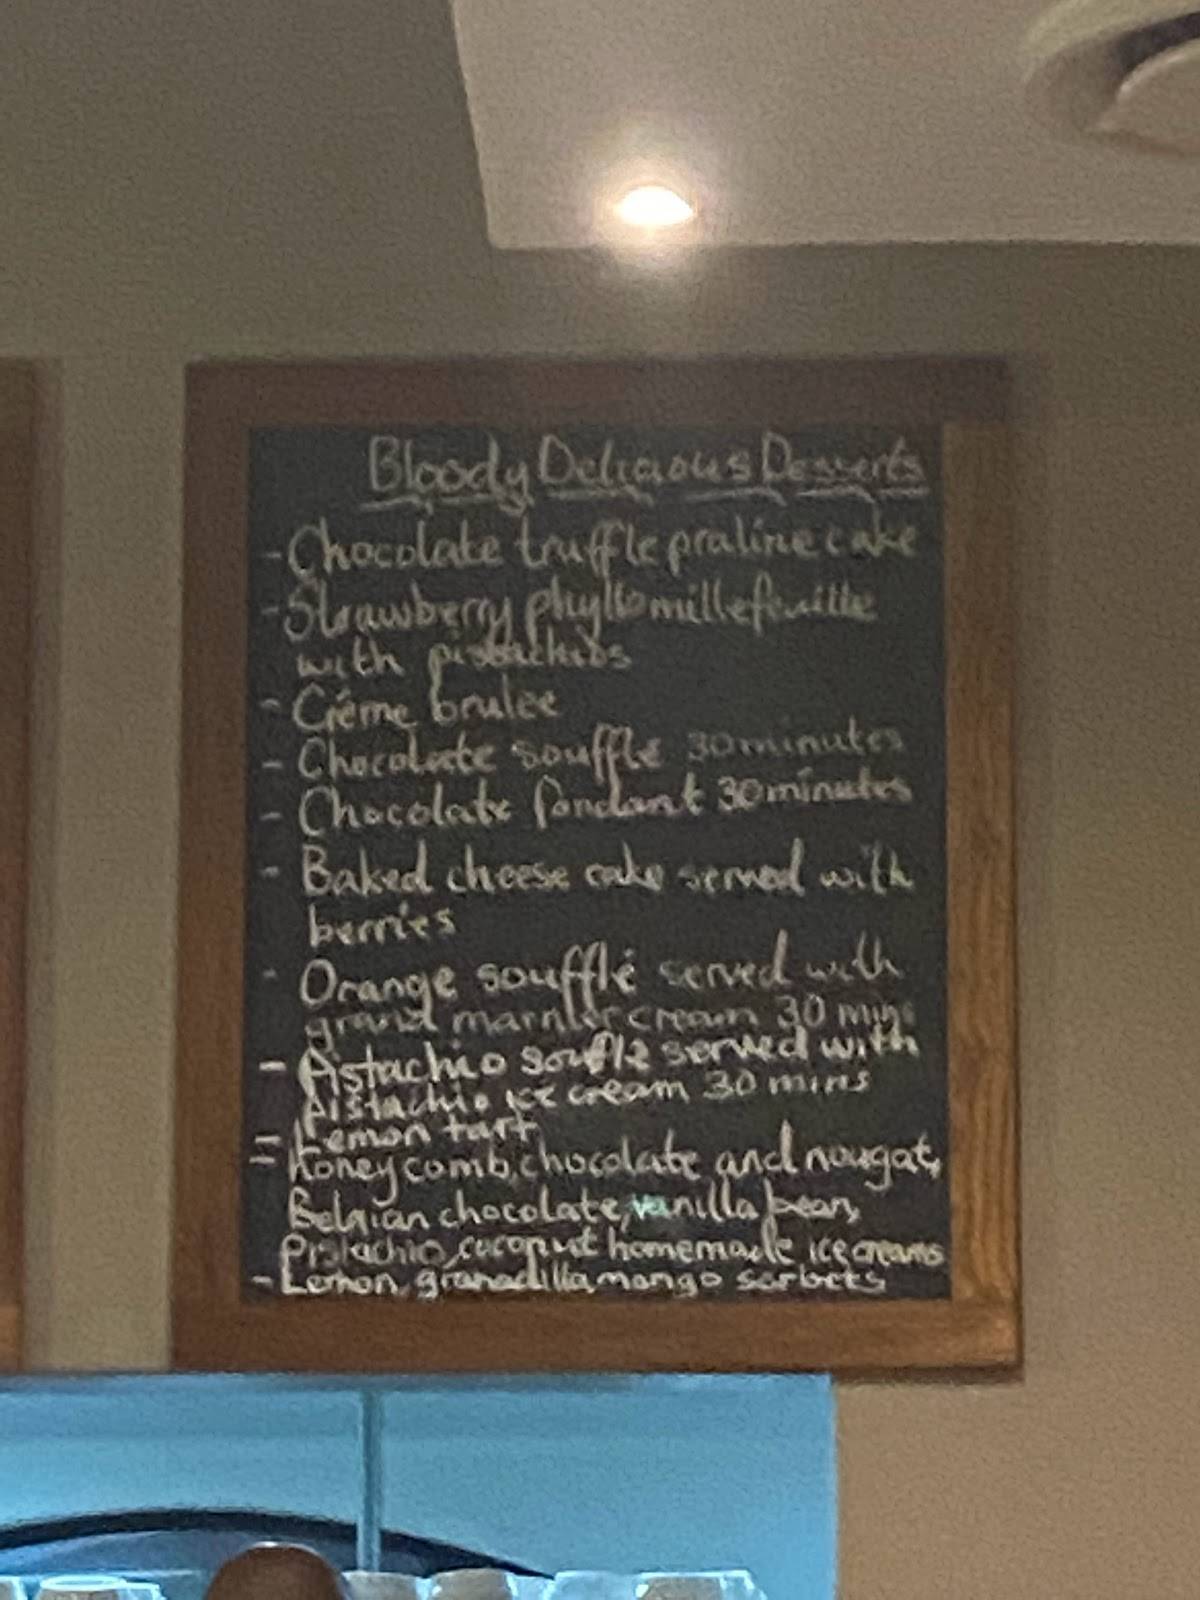 Bloody Delicious Desserts
- Chocolate truffle praline cake
- Strawberry phyllo millefeuille
with pistachios
- Créme brulee
- Chocolate soufflé 30 minutes
- Chocolate fondant 30 minutes
- Baked cheese cake served with
berries
- Orange soufflé served with
grand marnier cream 30 mins
- Pistachio soufflé served with
Pistachio ice cream 30 mins
- Lemon tart
- Honeycomb, chocolate and nougat,
Belgian chocolate, vanilla bean,
Pistachio, coconut homemade ice creams
- Lemon, granadilla, mango sorbets